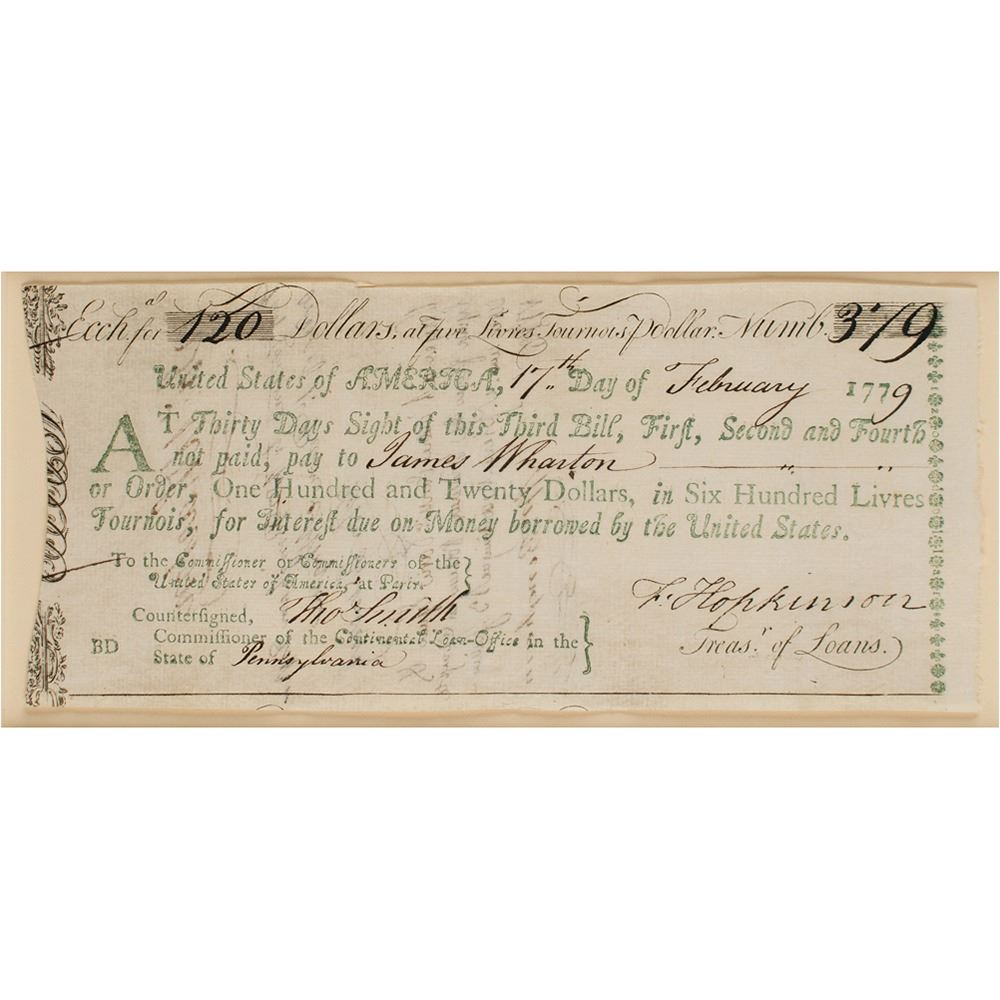 Excha for 120 Dollars, at five Livres Tournois p Dollar. Numb. 379
United States of AMERICA, 17th Day of February 1779
AT Thirty Days Sight of this Third Bill, Firſt, Second and Fourth
not paid, pay to James Wharton
or Order, One Hundred and Twenty Dollars, in Six Hundred Livres
Tournois, for Intereſt due on Money borrowed by the United States.
To the Commiſſioner or Commiſſioners of the
United States of America, at Paris.
Countersigned, Thos Smith
F. Hopkinson
Commiſſioner of the Continental Loan-Office in the
Treasr of Loans.
BD State of Pennsylvania